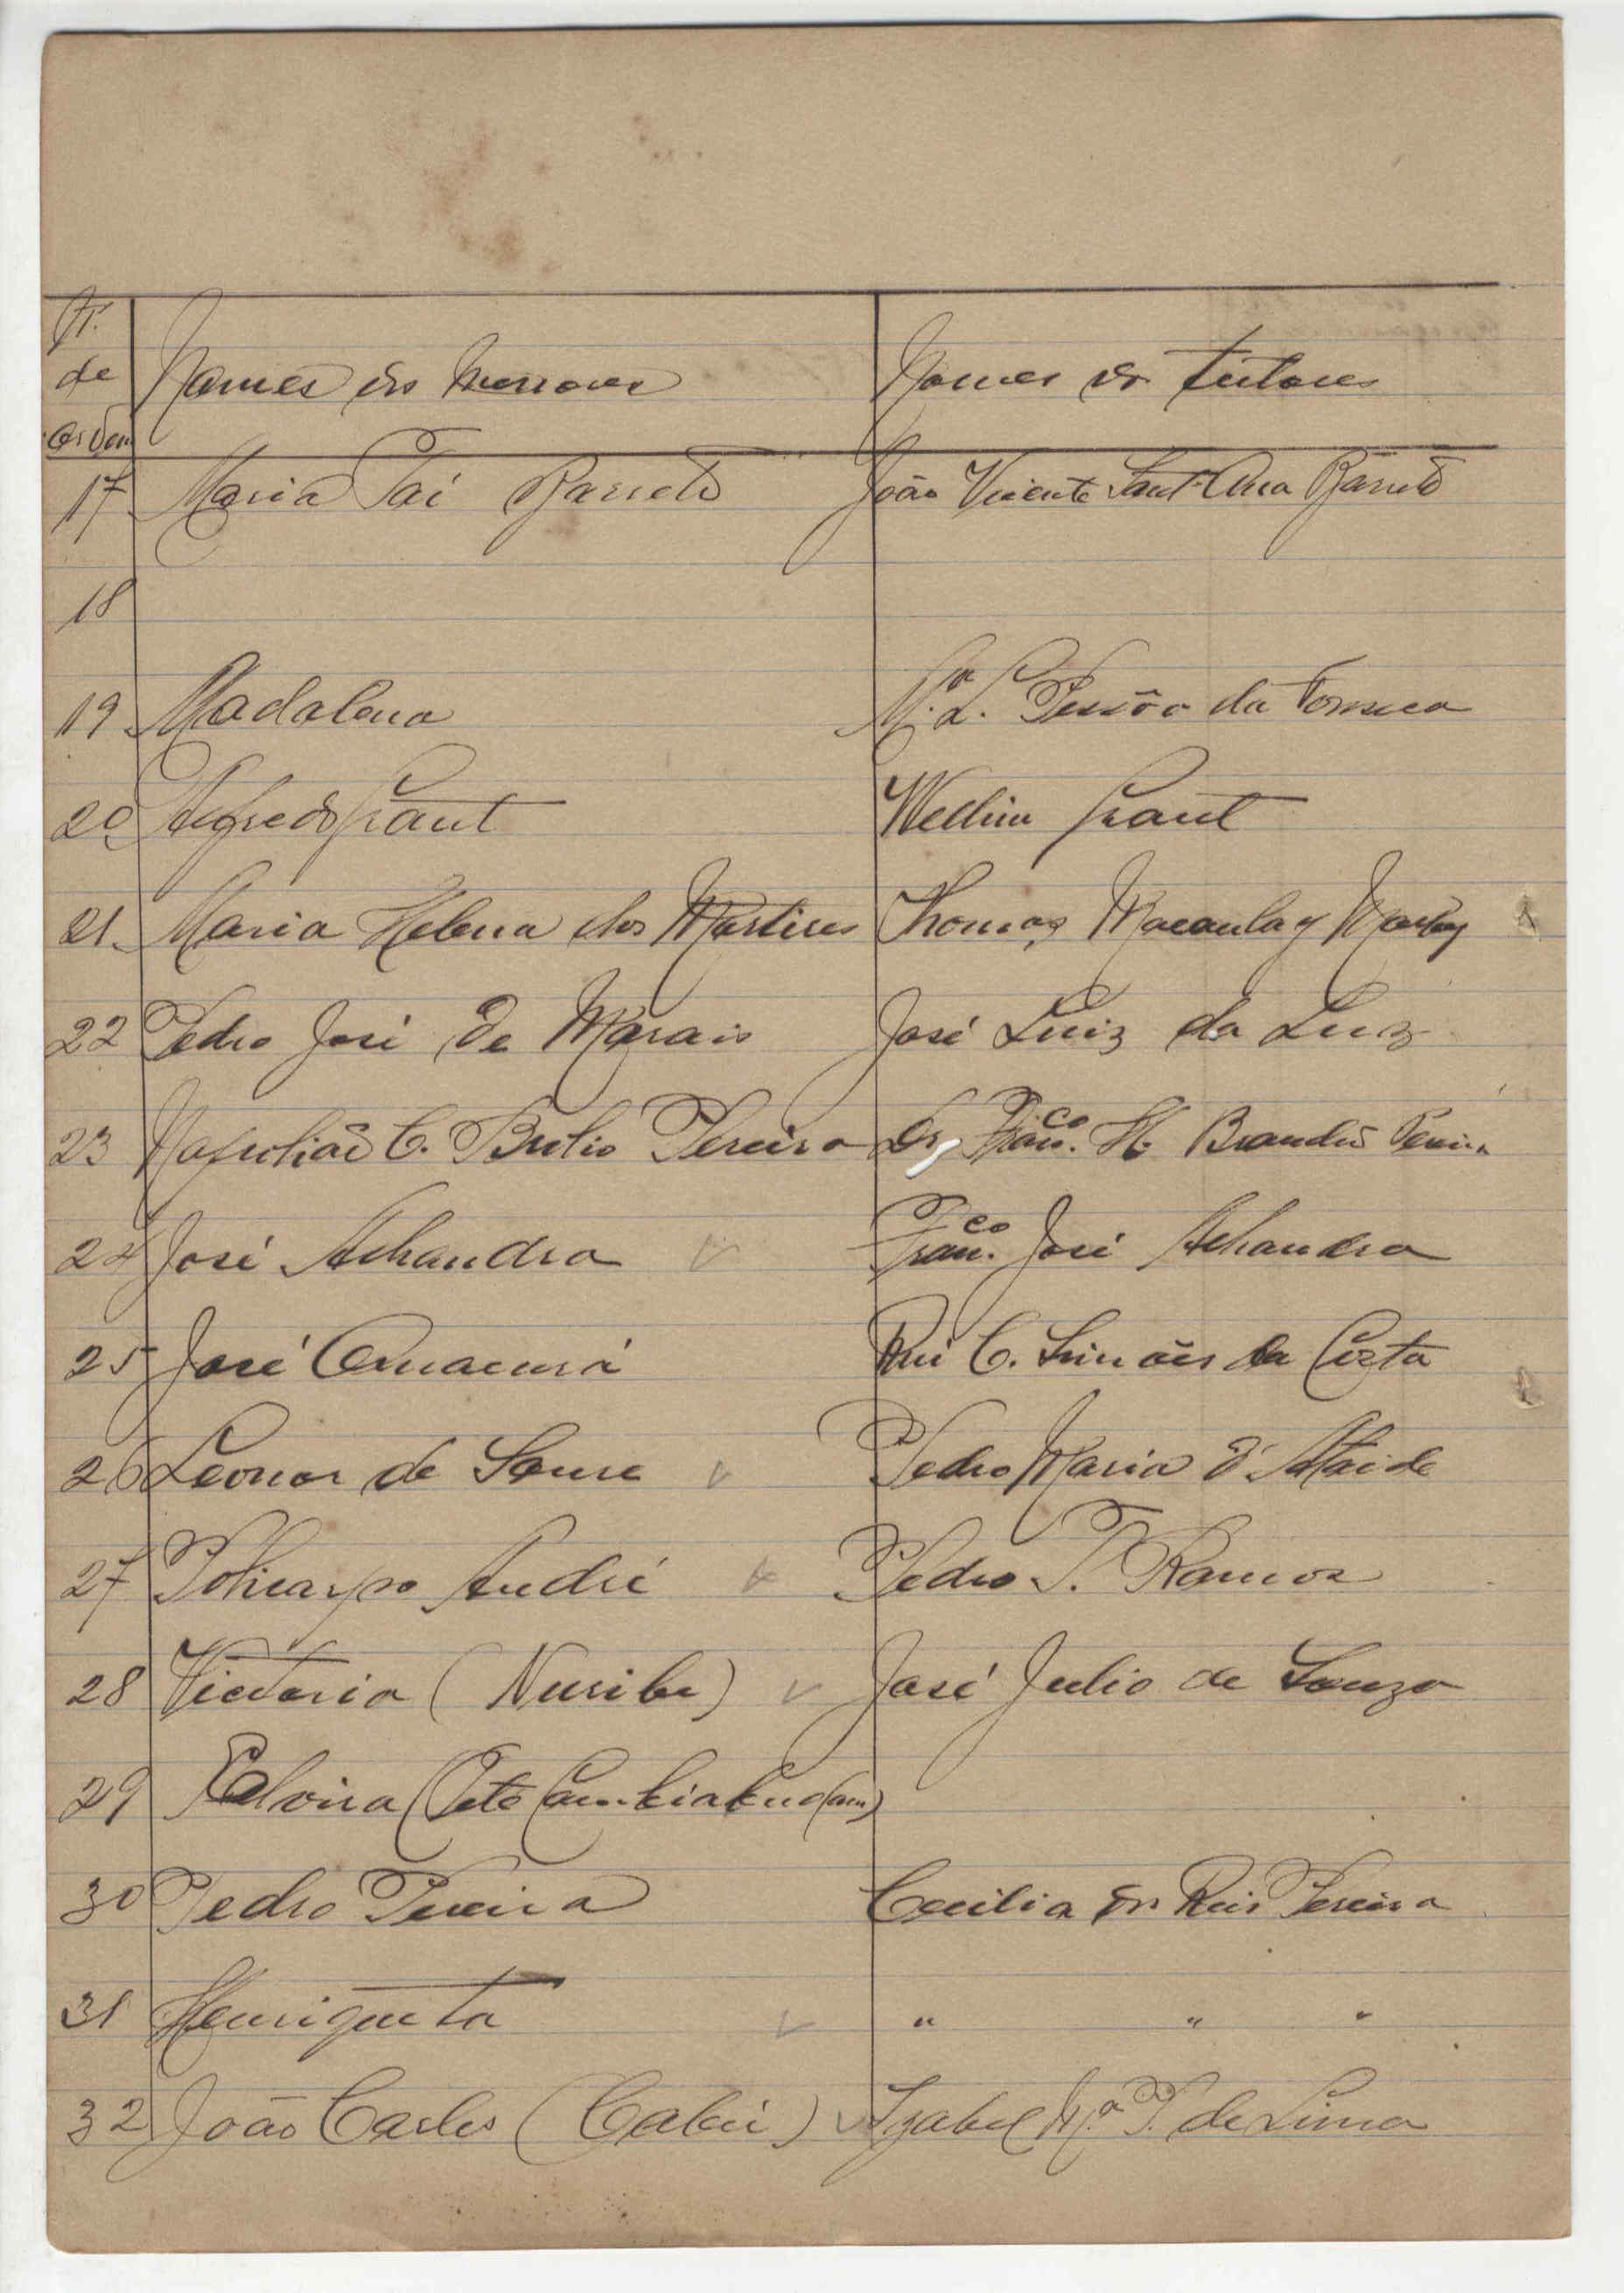 N.
de Nomes dos menores Nomes dos tutores
Ordem
17 Maria Taí Barreto João Vicente Sant'Ana Barreto
18
19 Madalena M.ª L. Pessôa da Fonseca
20 Alfredo Grant Wellim Grant
21 Maria Helena dos Martires Thomas Macaulay Marley
22 Pedro José de Morais José Luiz da Luz
23 Napolião C. Brelio Pereira Dr. Fran.co H. Brandão Pereira
24 José Alhandra v Fran.co José Alhandra
25 José Cumacurá Rui C. Simões da Costa
26 Leonor de Sousa v Pedro Maria d'Ataide
27 Policarpo André v Pedro T. Ramos
28 Victoria (Nuribe) v José Julio de Souza
29 Elvira (Pete
30 Pedro Pereira Cecilia dos Reis Pereira
31 Henriqueta v " " "
32 João Carlos (Cabeú) v Izabel M.ª P. de Lima